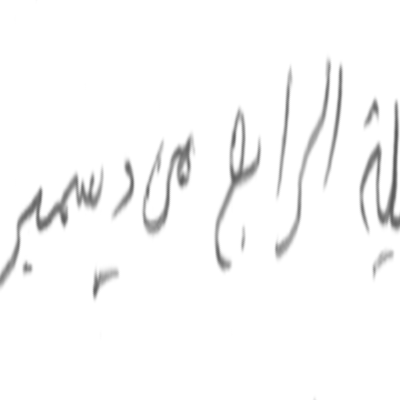 الرابع من ديسمبر